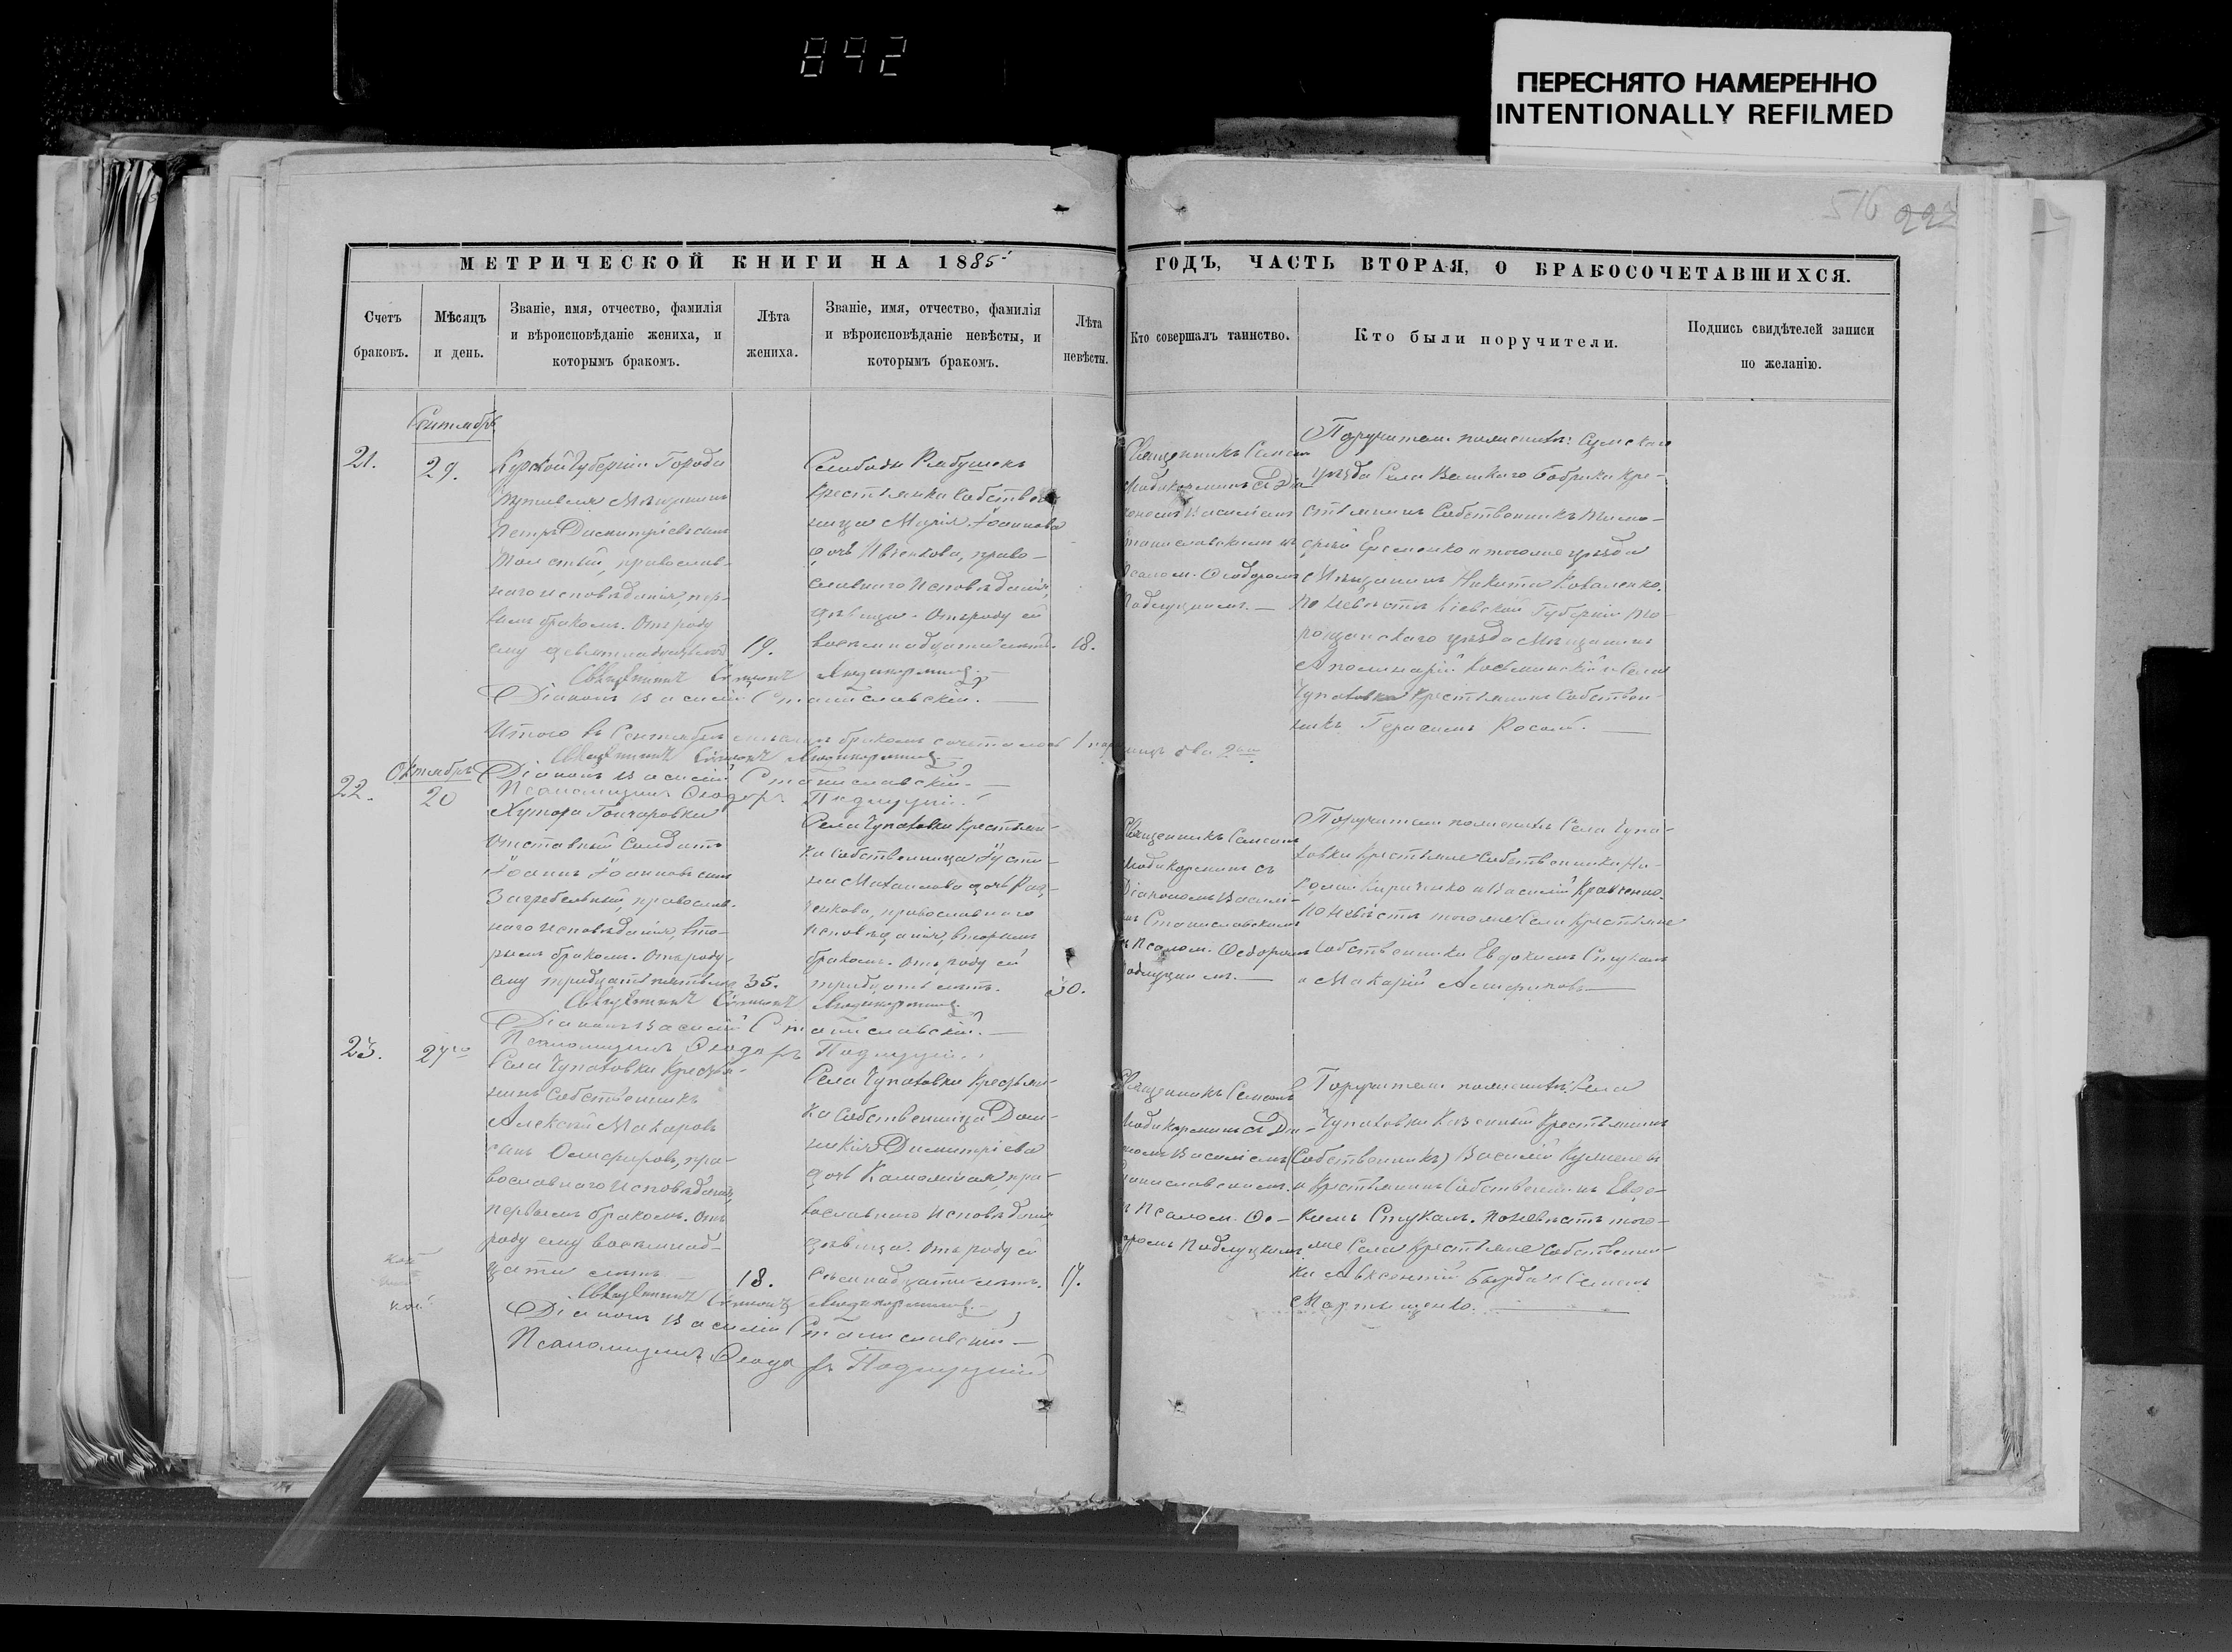 892
ПЕРЕСНЯТО НАМЕРЕННО
INTENTIONALLY REFILMED
516 222
МЕТРИЧЕСКОЙ КНИГИ НА 1885
ГОДЪ, ЧАСТЬ ВТОРАЯ, О БРАКОСОЧЕТАВШИХСЯ.
Счетъ браковъ.
Мѣсяцъ и день.
Званіе, имя, отчество, фамилія
и вѣроисповѣданіе жениха, и
которымъ бракомъ.
Лѣта жениха.
Званіе, имя, отчество, фамилія
и вѣроисповѣданіе невѣсты, и
которымъ бракомъ.
Лѣта невѣсты.
Кто совершалъ таинство.
Кто были поручители.
Подпись свидѣтелей записи
по желанію.
Сентябрь
21.
29.
Курской Губерніи Города
Путивля Мѣщанинъ
Петръ Димитріевъ сынъ
Толстый, православ-
наго исповѣданія, пер-
вымъ бракомъ. Отъ роду
ему девятнадцать лѣтъ
19.
Слободы Рябушекъ
крестьянка собствен-
ница Марія Іоаннова
дочь Ивченкова, право-
славнаго исповѣданія,
дѣвица. Отъ роду ей
восемнадцать лѣтъ.
18.
Священникъ
Діакономъ Василіемъ
Станиславскимъ и
Псалом. Ѳеодоромъ
Подлуцкимъ.
Поручители по женихѣ: Сумскаго
уѣзда Села Великаго Бобрика кре-
стьянинъ Собственникъ Тимо-
ѳей Еременко и того же уѣзда
Мѣщанинъ Никита Коваленко.
По невѣстѣ Кіевской Губерніи
уѣзда Мѣщанинъ
и Села
Чупаховки Крестьянинъ Собствен-
никъ Герасимъ
Священникъ
Діаконъ Василій Станиславскій.
Итого въ Сентябрѣ мѣсяцѣ бракомъ сочеталось 1 пара, лицъ два 2
Священникъ
Діаконъ Василій Станиславскій.
Псаломщикъ Ѳеодоръ Подлуцкій.
Октябрь
22.
20
Хутора Гончаровки
Отставный Солдатъ
Іоаннъ Іоанновъ сынъ
Загребельный, православ-
наго исповѣданія, вто-
рымъ бракомъ. Отъ роду
ему тридцать пять лѣтъ
35.
Села Чупаховки Крестьян-
ка собственница Іусти-
на Михаилова дочь
православнаго
исповѣданія, вторымъ
бракомъ. Отъ роду ей
тридцать лѣтъ.
30.
Священникъ
съ
Діакономъ Василі-
емъ Станиславскимъ
и Псалом. Ѳеодоромъ
Подлуцкимъ.
Поручители по женихѣ Села Чупа-
ховки Крестьяне Собственники
Кириченко и Василій Кравченко.
По невѣстѣ того же Села Крестьяне
Собственники Евдокимъ Стукалъ
и Макарій
Священникъ
Діаконъ Василій Станиславскій.
Псаломщикъ Ѳеодоръ Подлуцкій.
23.
27го
Села Чупаховки Крестья-
нинъ Собственникъ
Алексій Макаровъ
сынъ пра-
вославнаго исповѣданія,
первымъ бракомъ. Отъ
роду ему восемнад-
цать лѣтъ
18.
Села Чупаховки Крестьян-
ка Собственница Дом-
никія Димитріева
дочь пра-
вославнаго исповѣданія,
дѣвица. Отъ роду ей
семнадцать лѣтъ.
17.
Священникъ
Василіемъ
Станиславскимъ
и Псалом. Ѳео-
доромъ Подлуцкимъ
Поручители по женихѣ: Села
Чупаховки Казенный Крестьянинъ
(Собственникъ) Василій
и Крестьянинъ Собственникъ Евдо-
кимъ Стукалъ. По невѣстѣ того-
же Села Крестьяне Собственни-
ки Авксентій Бырда и Семенъ
Мартыщенко.
Священникъ
Діаконъ Василій Станиславскій
Псаломщикъ Ѳеодоръ Подлуцкій